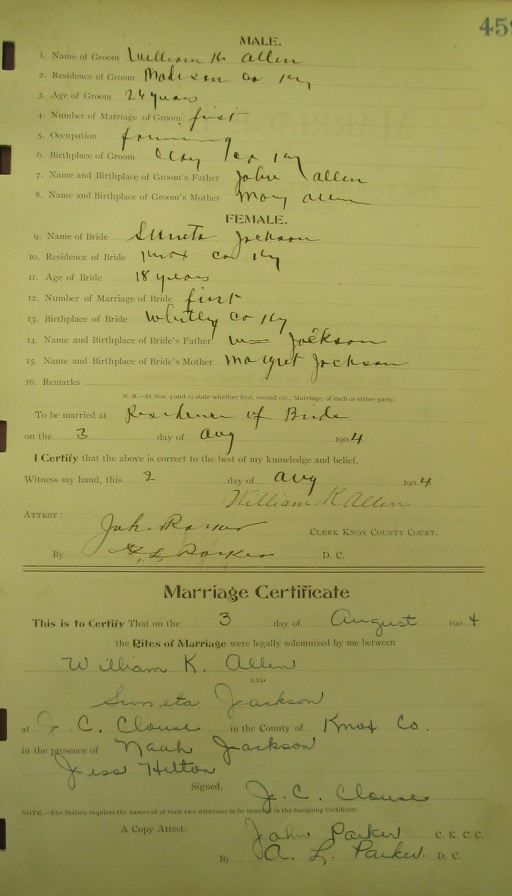 459
MALE.
1. Name of Groom William K. Allen
2. Residence of Groom Madison Co Ky
3. Age of Groom 24 years
4. Number of Marriage of Groom first
5. Occupation farming
6. Birthplace of Groom Clay Co Ky
7. Name and Birthplace of Groom's Father John Allen
8. Name and Birthplace of Groom's Mother Mary Allen
FEMALE.
9. Name of Bride Sumeta Jackson
10. Residence of Bride Knox Co Ky
11. Age of Bride 18 years
12. Number of Marriage of Bride first
13. Birthplace of Bride Whitley Co Ky
14. Name and Birthplace of Bride's Father Wm Jackson
15. Name and Birthplace of Bride's Mother Margret Jackson
16. Remarks
N. B.—At Nos. 4 and 12 state whether first, second etc., Marriage, of each or either party.
To be married at Residence of Bride
on the 3 day of Aug 1904
I Certify that the above is correct to the best of my knowledge and belief.
Witness my hand, this 2 day of Aug 1904
William K. Allen
ATTEST:
John Parker CLERK KNOX COUNTY COURT.
By A. L. Parker D. C.
Marriage Certificate
This is to Certify That on the 3 day of August 1904
the Rites of Marriage were legally solemnized by me between
William K. Allen
AND
Sumeta Jackson
at J. C. Clouse in the County of Knox Co.
in the presence of Noah Jackson
Jess Hilton
Signed, J. C. Clouse
NOTE.—The Statute requires the names of at least two witnesses to be inserted in the foregoing Certificate.
A Copy Attest: John Parker C. K. C. C.
By A. L. Parker. D. C.